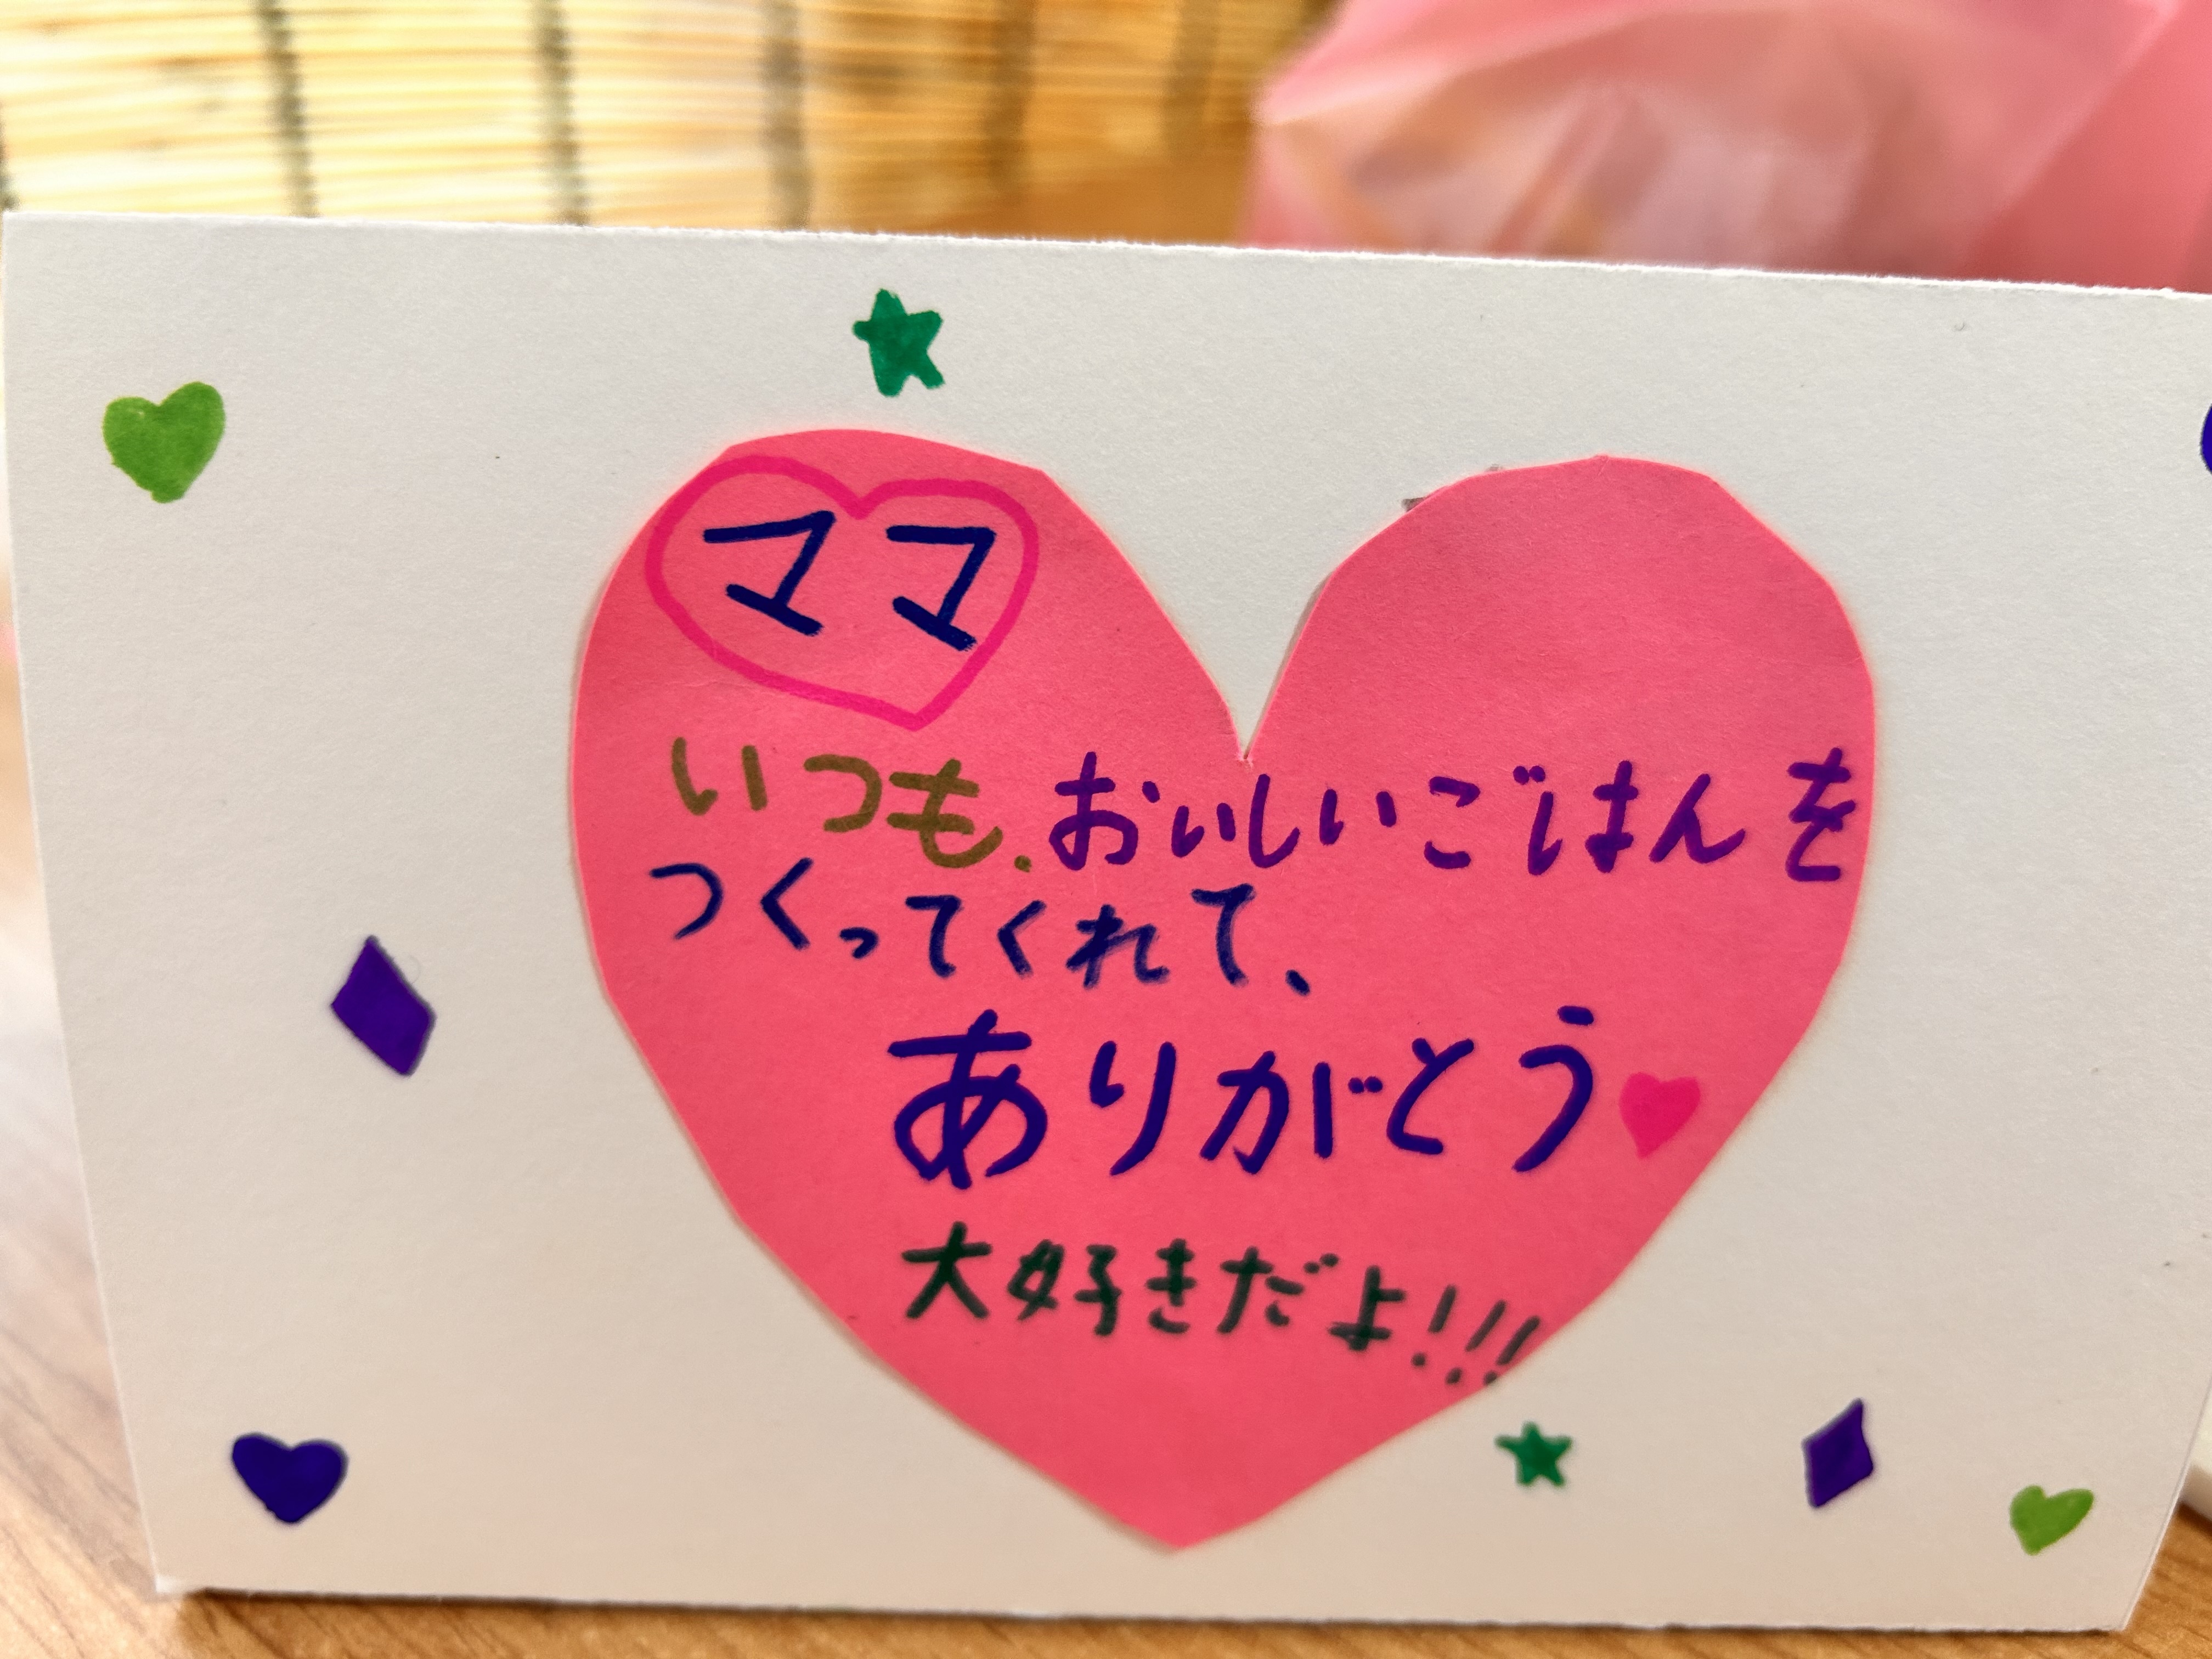 ママ
いつも.おいしいごはんを
つくってくれて、
ありがとう♥
大好きだよ!!!